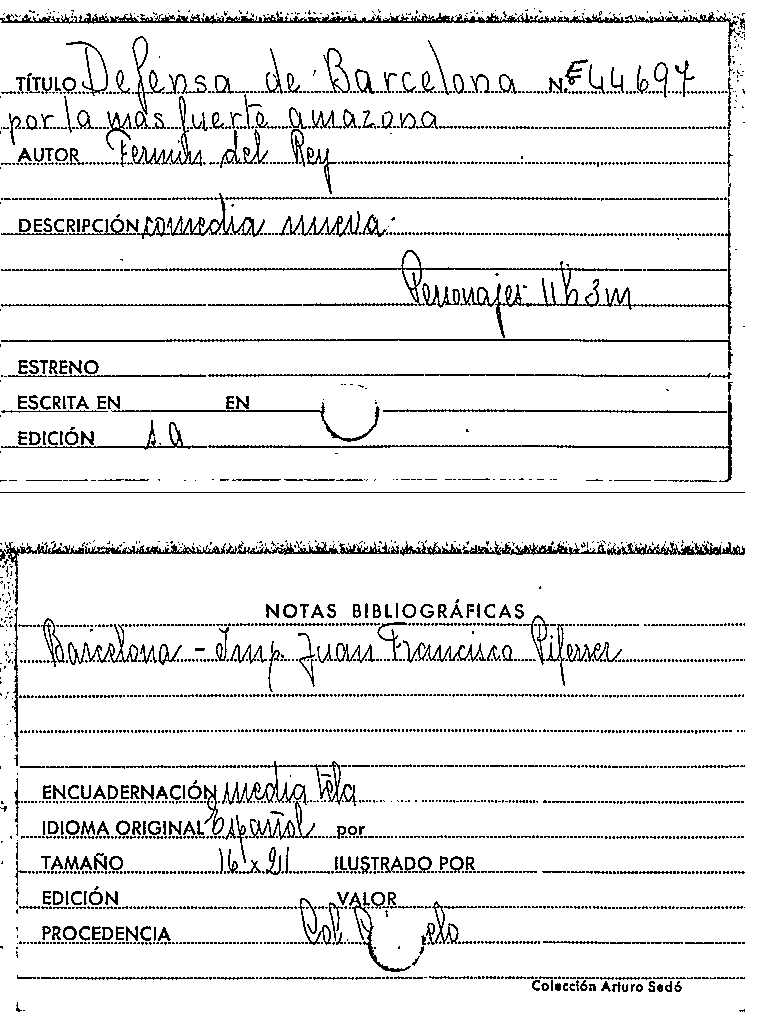 TÍTULO Defensa de Barcelona N.º E 44697
por la más fuerte amazona
AUTOR Fermín del Rey
DESCRIPCIÓN comedia nueva.
Personajes: 11 h 3 m
ESTRENO
ESCRITA EN EN
EDICIÓN s.a
NOTAS BIBLIOGRÁFICAS
Barcelona - Imp. Juan Francisco Piferrer
ENCUADERNACIÓN media tela
IDIOMA ORIGINAL Español por
TAMAÑO 16 x 21 ILUSTRADO POR
EDICIÓN VALOR
PROCEDENCIA Col.
Colección Arturo Sedó